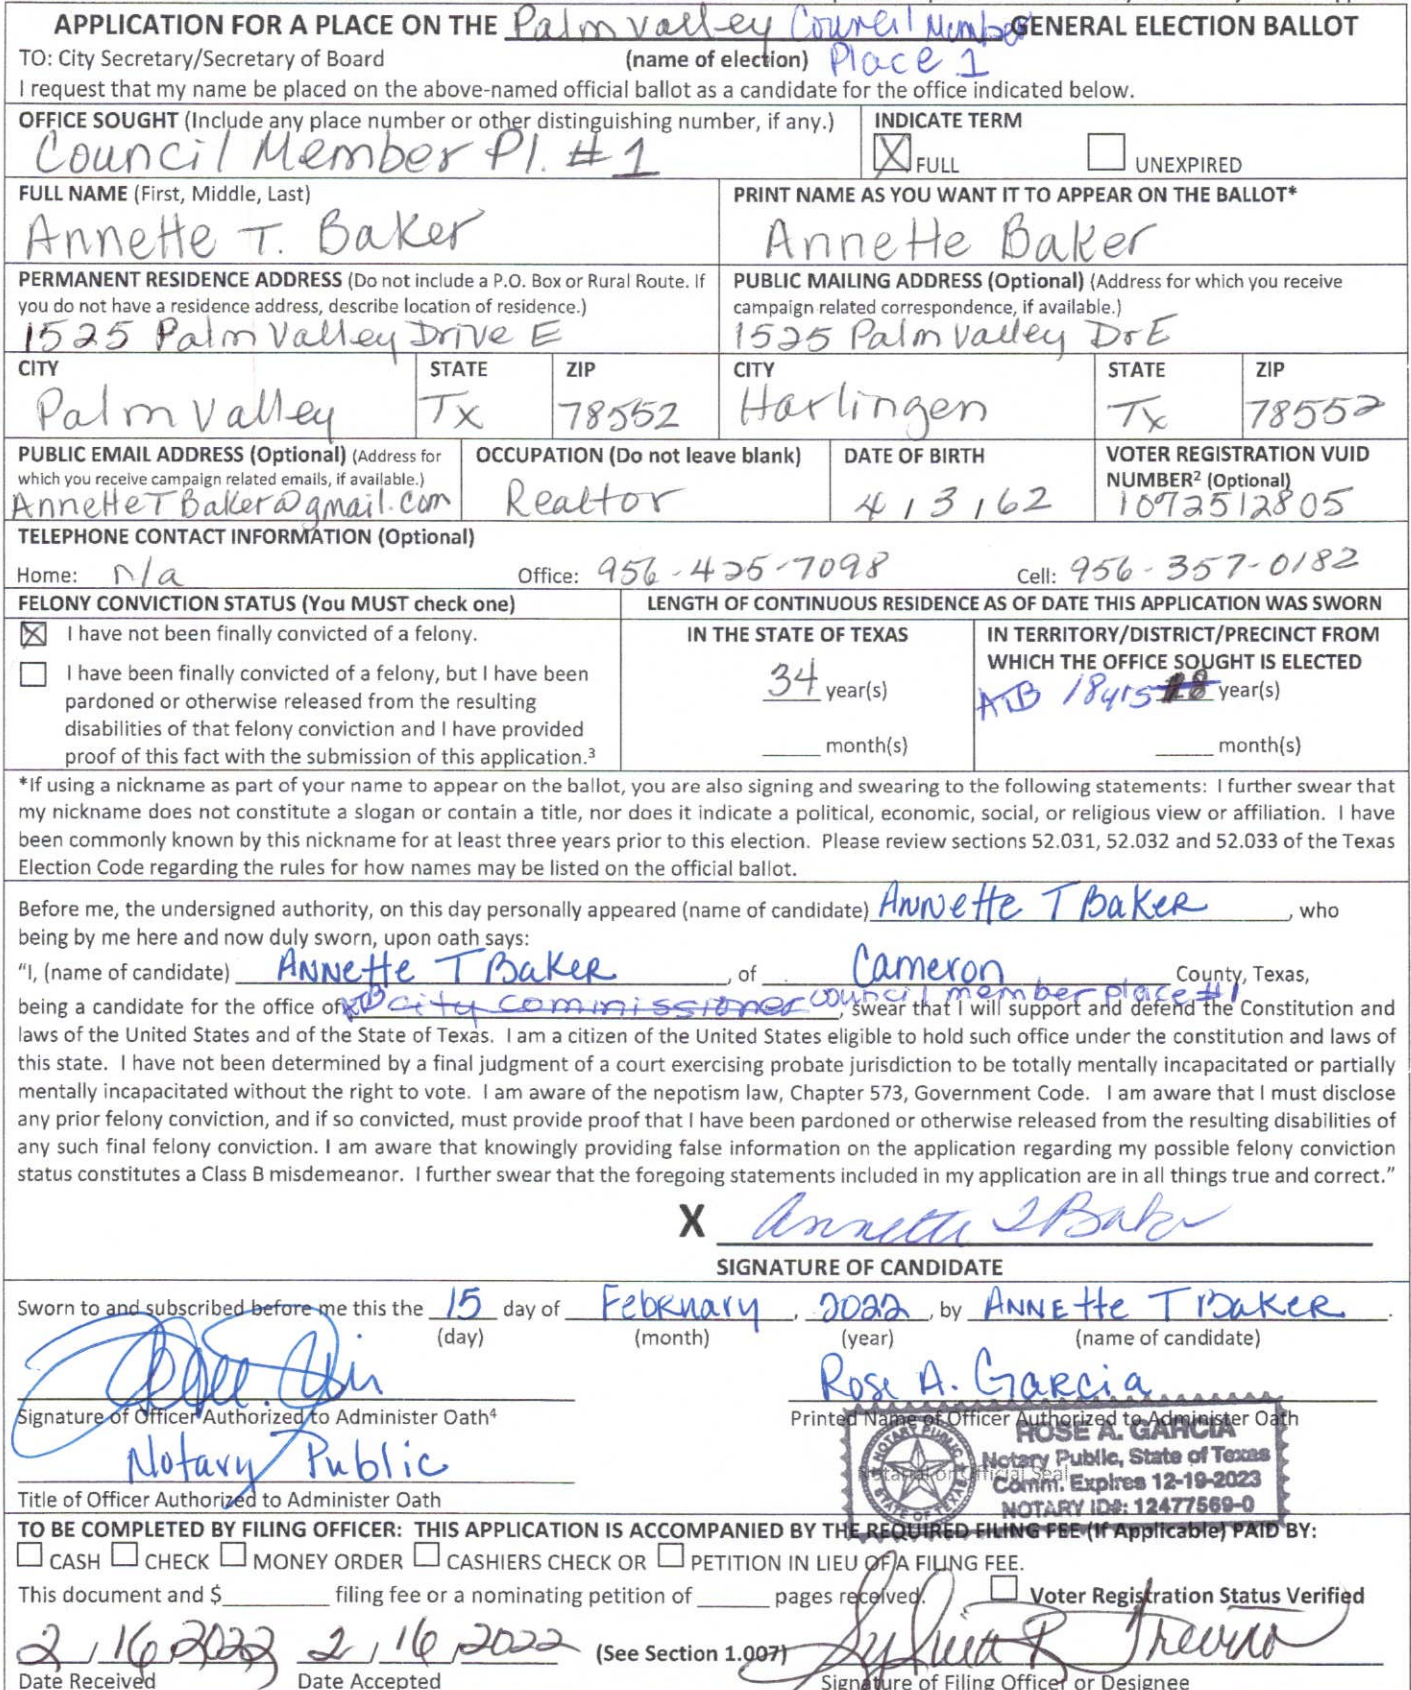 APPLICATION FOR A PLACE ON THE Palm Valley Council Member GENERAL ELECTION BALLOT
TO: City Secretary/Secretary of Board (name of election) Place 1
I request that my name be placed on the above-named official ballot as a candidate for the office indicated below.
OFFICE SOUGHT (Include any place number or other distinguishing number, if any.) INDICATE TERM
Council Member Pl. #1 X FULL UNEXPIRED
FULL NAME (First, Middle, Last) PRINT NAME AS YOU WANT IT TO APPEAR ON THE BALLOT*
Annette T. Baker Annette Baker
PERMANENT RESIDENCE ADDRESS (Do not include a P.O. Box or Rural Route. If PUBLIC MAILING ADDRESS (Optional) (Address for which you receive
you do not have a residence address, describe location of residence.) campaign related correspondence, if available.)
1525 Palm Valley Drive E 1525 Palm Valley Dr E
CITY STATE ZIP CITY STATE ZIP
Palm Valley Tx 78552 Harlingen Tx 78552
PUBLIC EMAIL ADDRESS (Optional) (Address for OCCUPATION (Do not leave blank) DATE OF BIRTH VOTER REGISTRATION VUID
which you receive campaign related emails, if available.) NUMBER² (Optional)
AnnetteTBaker@gmail.com Realtor 4 / 3 / 62 1072512805
TELEPHONE CONTACT INFORMATION (Optional)
Home: n/a Office: 956-425-7098 Cell: 956-357-0182
FELONY CONVICTION STATUS (You MUST check one) LENGTH OF CONTINUOUS RESIDENCE AS OF DATE THIS APPLICATION WAS SWORN
X I have not been finally convicted of a felony. IN THE STATE OF TEXAS IN TERRITORY/DISTRICT/PRECINCT FROM
WHICH THE OFFICE SOUGHT IS ELECTED
I have been finally convicted of a felony, but I have been 34 year(s) ATB 18yrs year(s)
pardoned or otherwise released from the resulting
disabilities of that felony conviction and I have provided month(s) month(s)
proof of this fact with the submission of this application.³
*If using a nickname as part of your name to appear on the ballot, you are also signing and swearing to the following statements: I further swear that
my nickname does not constitute a slogan or contain a title, nor does it indicate a political, economic, social, or religious view or affiliation. I have
been commonly known by this nickname for at least three years prior to this election. Please review sections 52.031, 52.032 and 52.033 of the Texas
Election Code regarding the rules for how names may be listed on the official ballot.
Before me, the undersigned authority, on this day personally appeared (name of candidate) Annette T Baker, who
being by me here and now duly sworn, upon oath says:
"I, (name of candidate) Annette T Baker, of Cameron County, Texas,
being a candidate for the office of ATB city commissioner council member place #1, swear that I will support and defend the Constitution and
laws of the United States and of the State of Texas. I am a citizen of the United States eligible to hold such office under the constitution and laws of
this state. I have not been determined by a final judgment of a court exercising probate jurisdiction to be totally mentally incapacitated or partially
mentally incapacitated without the right to vote. I am aware of the nepotism law, Chapter 573, Government Code. I am aware that I must disclose
any prior felony conviction, and if so convicted, must provide proof that I have been pardoned or otherwise released from the resulting disabilities of
any such final felony conviction. I am aware that knowingly providing false information on the application regarding my possible felony conviction
status constitutes a Class B misdemeanor. I further swear that the foregoing statements included in my application are in all things true and correct."
X Annette T Baker
SIGNATURE OF CANDIDATE
Sworn to and subscribed before me this the 15 day of February, 2022, by Annette T Baker.
(day) (month) (year) (name of candidate)
Rose A. Garcia
Signature of Officer Authorized to Administer Oath⁴ Printed Name of Officer Authorized to Administer Oath
Notary Public
Title of Officer Authorized to Administer Oath
Notarial or Official Seal
ROSE A. GARCIA
Notary Public, State of Texas
Comm. Expires 12-19-2023
NOTARY ID#: 12477569-0
NOTARY PUBLIC
STATE OF TEXAS
TO BE COMPLETED BY FILING OFFICER: THIS APPLICATION IS ACCOMPANIED BY THE REQUIRED FILING FEE (If Applicable) PAID BY:
CASH CHECK MONEY ORDER CASHIERS CHECK OR PETITION IN LIEU OF A FILING FEE.
This document and $ filing fee or a nominating petition of pages received. Voter Registration Status Verified
2/16/2022 2/16/2022 (See Section 1.007) R Trevino
Date Received Date Accepted Signature of Filing Officer or Designee